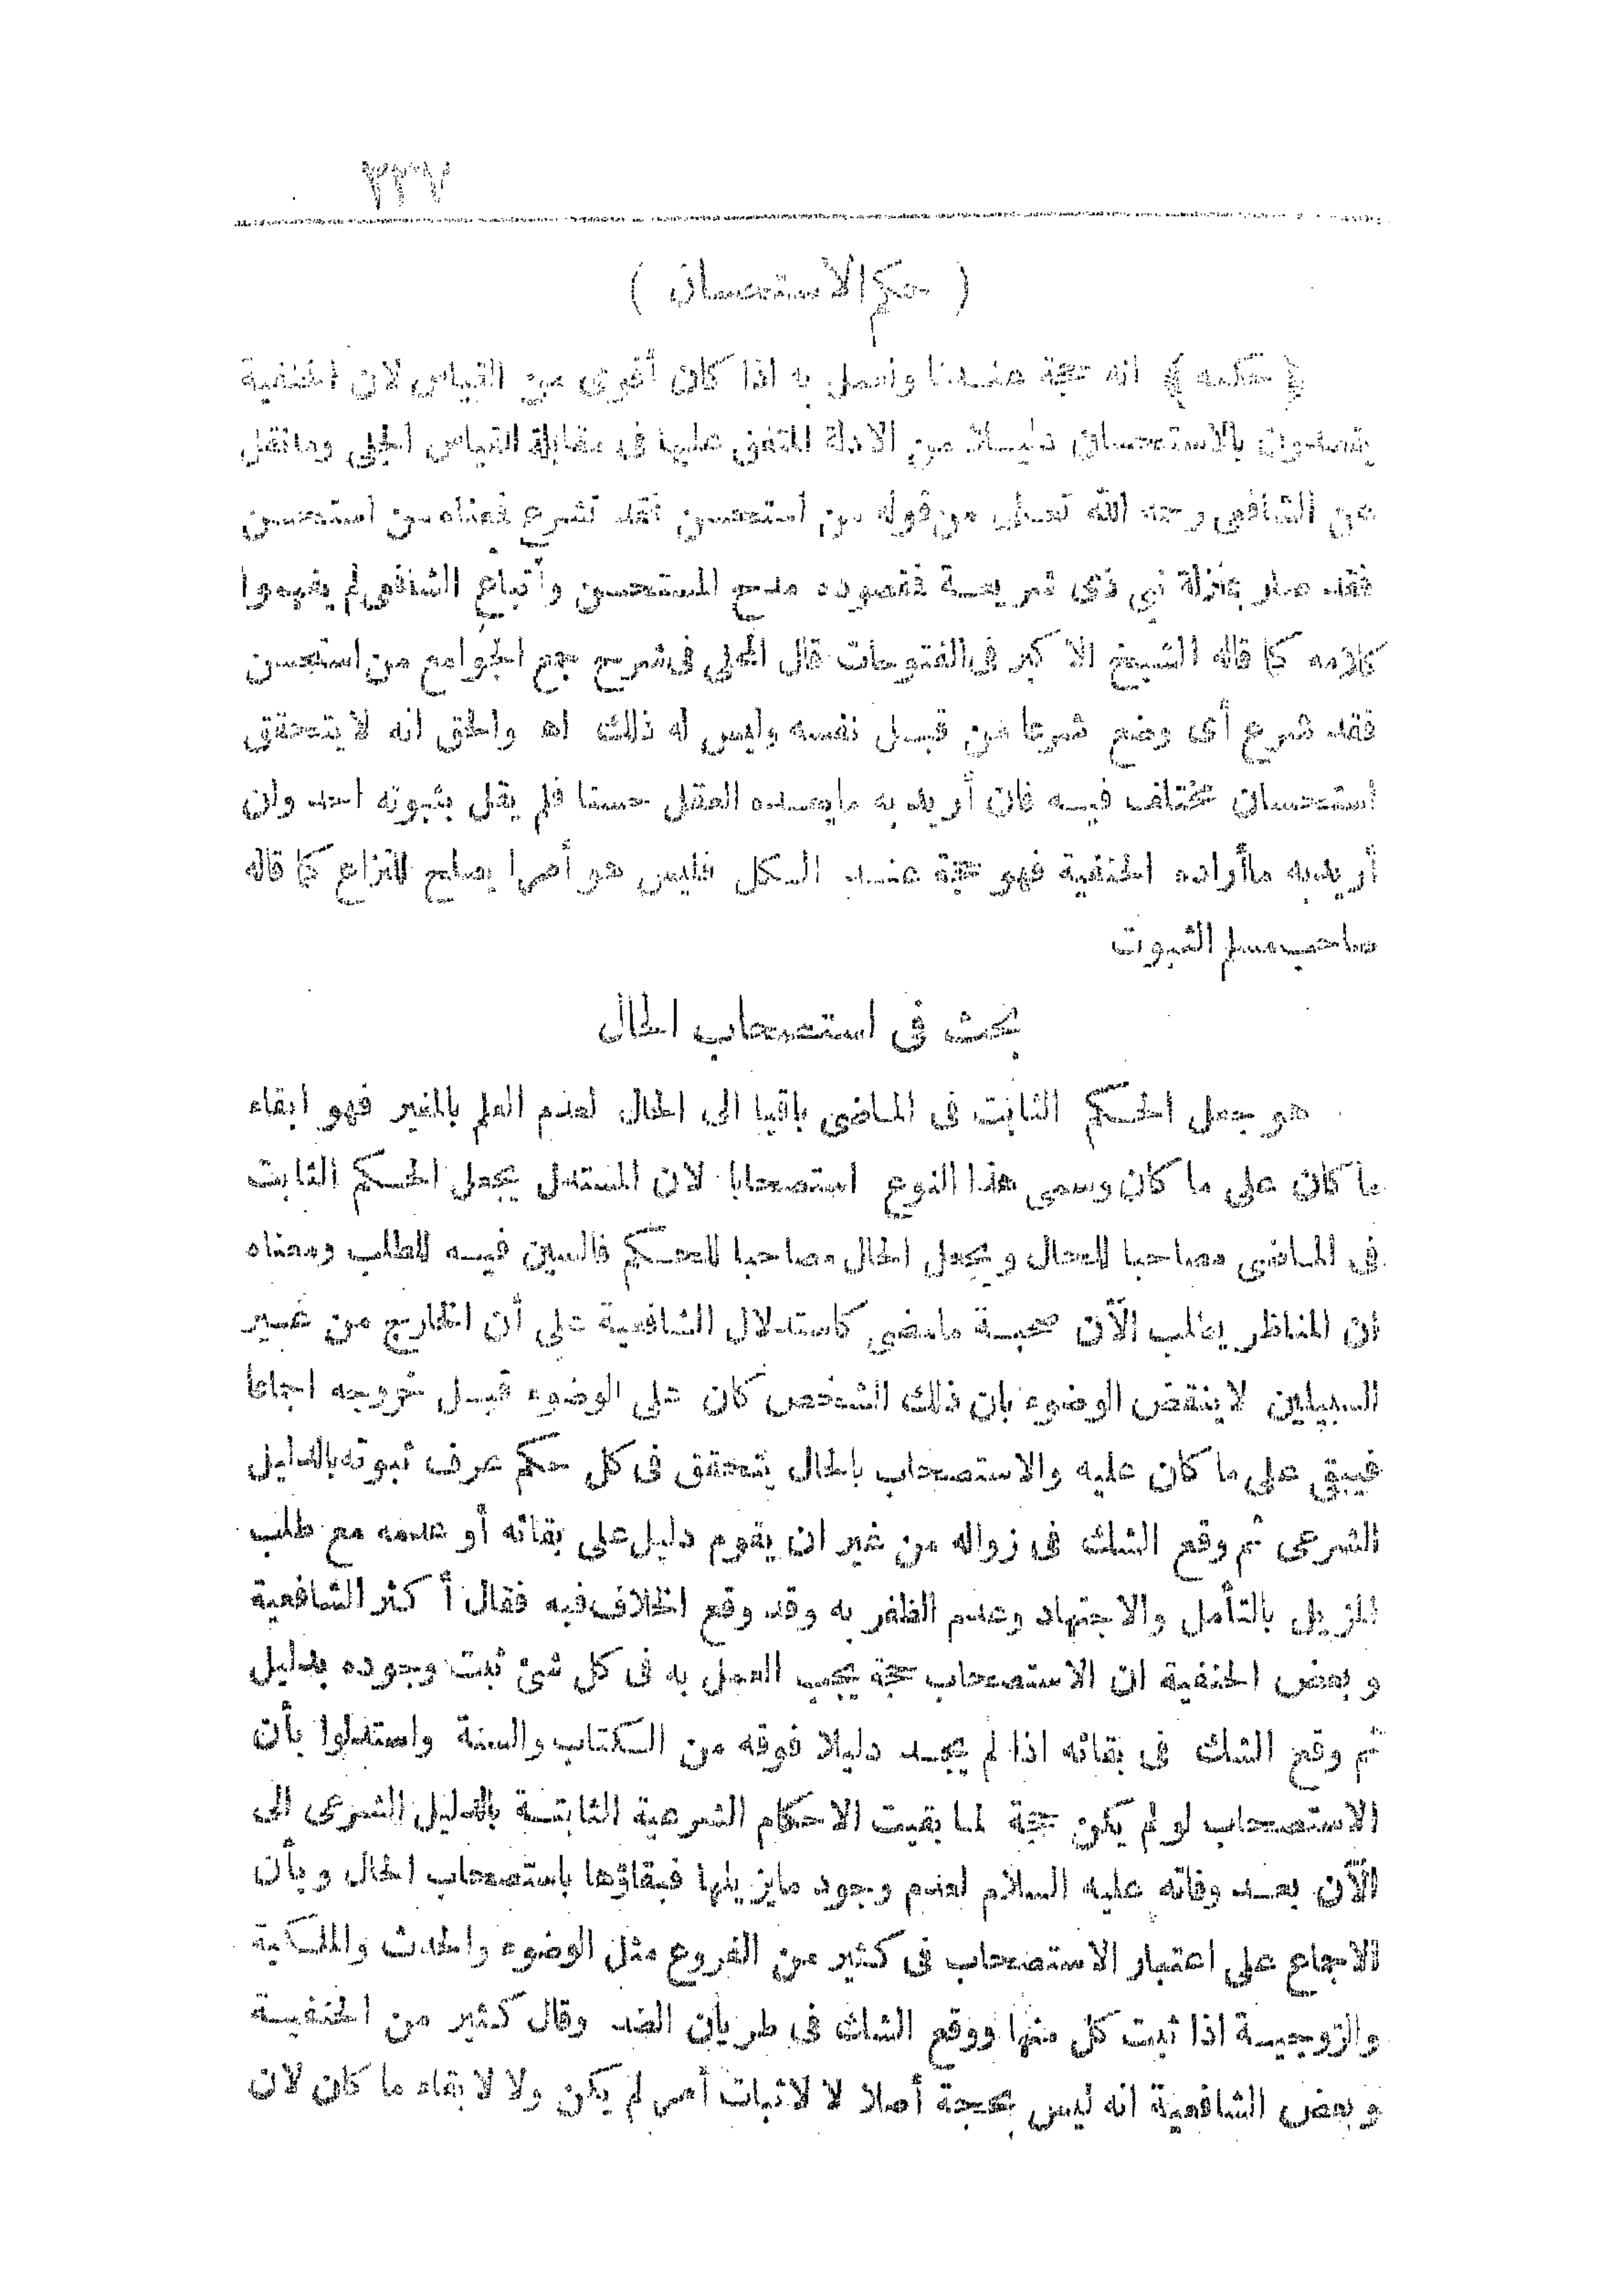 ٢٢٧
( حكم الاستحسان )
﴿ حكمه ﴾ انه حجة عندنا ونعمل به اذا كان أقوى من القياس لان الحنفية
يقصدون بالاستحسان دليلا من الادلة المتفق عليها فى مقابلة القياس الجلى ومانقل
عن الشافعى رحمه الله تعالى من قوله من استحسن فقد شرع فمعناه من استحسن
فقد صار بمنزلة نبى ذى شريعة فقصوده مدح المستحسن وأتباع الشافعى لم يفهموا
كلامه كما قاله الشيخ الاكبر فى الفتوحات قال المحلى فى شرح جمع الجوامع من استحسن
فقد شرع أى وضع شرعا من قبل نفسه وليس له ذلك اه والحق انه لا يتحقق
استحسان مختلف فيه فان أريد به مايعده العقل حسنا فلم يقل بثبوته احد وان
أريد به ماأراده الحنفية فهو حجة عند الكل فليس هو أمرا يصلح للنزاع كما قاله
صاحب مسلم الثبوت
بحث فى استصحاب الحال
هو جعل الحكم الثابت فى الماضى باقيا الى الحال لعدم العلم بالمغير فهو ابقاء
ما كان على ما كان وسمى هذا النوع استصحابا لان المستدل يجعل الحكم الثابت
فى الماضى مصاحبا للحال ويجعل الحال مصاحبا للحكم فالسين فيه للطلب ومعناه
ان المناظر يطلب الآن صحبة مامضى كاستدلال الشافعية على أن الخارج من غير
السبيلين لاينقض الوضوء بان ذلك الشخص كان على الوضوء قبل خروجه اجماعا
فيبقى على ما كان عليه والاستصحاب بالحال يتحقق فى كل حكم عرف ثبوته بالدليل
الشرعى ثم وقع الشك فى زواله من غير ان يقوم دليل على بقائه أو عدمه مع طلب
المزيل بالتأمل والاجتهاد وعدم الظفر به وقد وقع الخلاف فيه فقال أكثر الشافعية
وبعض الحنفية ان الاستصحاب حجة يجب العمل به فى كل شئ ثبت وجوده بدليل
ثم وقع الشك فى بقائه اذا لم يجد دليلا فوقه من الكتاب والسنة واستدلوا بأن
الاستصحاب لو لم يكن حجة لما بقيت الاحكام الشرعية الثابتة بالدليل الشرعى الى
الآن بعد وفاته عليه السلام لعدم وجود مايزيلها فبقاؤها باستصحاب الحال وبأن
الاجماع على اعتبار الاستصحاب فى كثير من الفروع مثل الوضوء والحدث والملكية
والزوجية اذا ثبت كل منها ووقع الشك فى طريان الضد وقال كثير من الحنفية
وبعض الشافعية انه ليس بحجة أصلا لا لاثبات أمر لم يكن ولا لابقاء ما كان لان